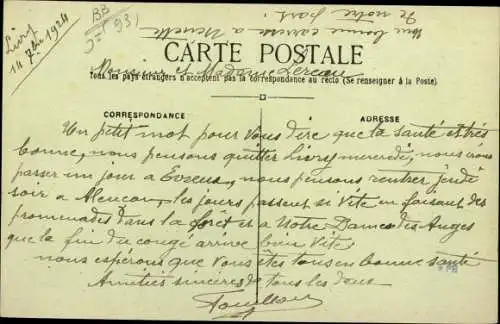 Livry
14 7bre 1924
BB
931
Une bonne caresse a
de notre part.
CARTE POSTALE
Monsieur et Madame
Tous les pays étrangers n'acceptent pas la correspondance au recto (Se renseigner à la Poste)
CORRESPONDANCE
ADRESSE
Un petit mot pour vous dire que la santé est très
bonne, nous pensons quitter Livry mercredi, nous irons
passer un jour a Evreux, nous pensons rentrer jeudi
soir a Alencon, les jours passent si vite en faisant des
promenades dans la forêt et a Notre Dame des Anges
que la fin du congé arrive bien vite
nous espérons que vous êtes tous en bonne santé
Amitiés sincères de tous les deux